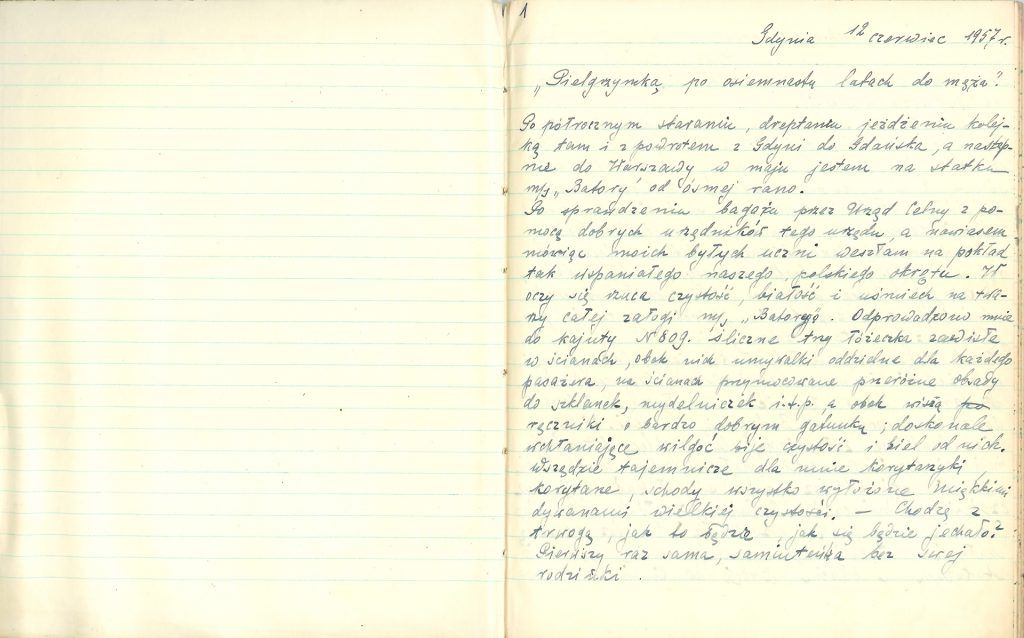 1
Gdynia 12 czerwiec 1957 r.
„Pielgrzymką po osiemnastu latach do męża".
Po półrocznym staraniu, dreptaniu jeżdżeniu kolej-
ką tam i z powrotem z Gdyni do Gdańska, a następ-
nie do Warszawy w maju jestem na statku
m/s „Batory" od ósmej rano.
Po sprawdzeniu bagażu przez Urząd Celny z po-
mocą dobrych urzędników tego urzędu, a nawiasem
mówiąc moich byłych uczni weszłam na pokład
tak wspaniałego naszego, polskiego okrętu. W
oczy się rzuca czystość, białość i uśmiech na twa-
rzy całej załogi m/s „Batory". Odprowadzono mnie
do kajuty N 809. śliczne trzy łóżeczka zawisłe
w ścianach, obok nich umywalki oddzielne dla każdego
pasażera, na ścianach przymocowane przeróżne obsady
do szklanek, mydelniczek i.t.p. a obok wiszą
ręczniki o bardzo dobrym gatunku; doskonale
wchłaniające wilgoć bije czystość i biel od nich.
Wszędzie tajemnicze dla mnie korytarzyki,
korytarze, schody wszystko wyłożone miękkimi
dywanami wielkiej czystości. — Chodzę z
trwogą, jak to będzie, jak się będzie jechało?
Pierwszy raz sama, samiuteńka bez swej
rodzinki.